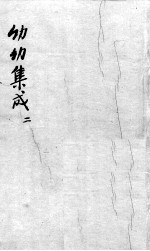 幼幼集成二